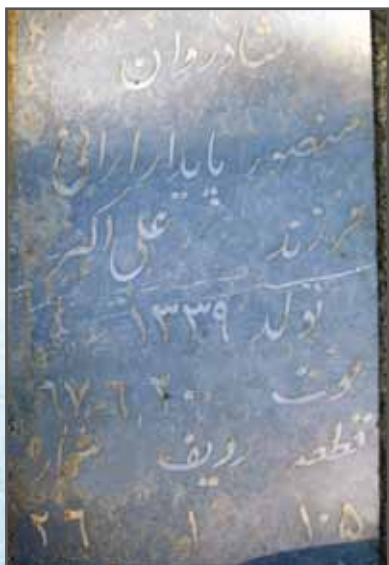 شادروان
منصور پایدار ارانی
فرزند علی اکبر
تولد ۱۳۳۹
موت ۶۷-۶-۲۰
قطعه ردیف شماره
۱۰۵ ۱ ۲۶